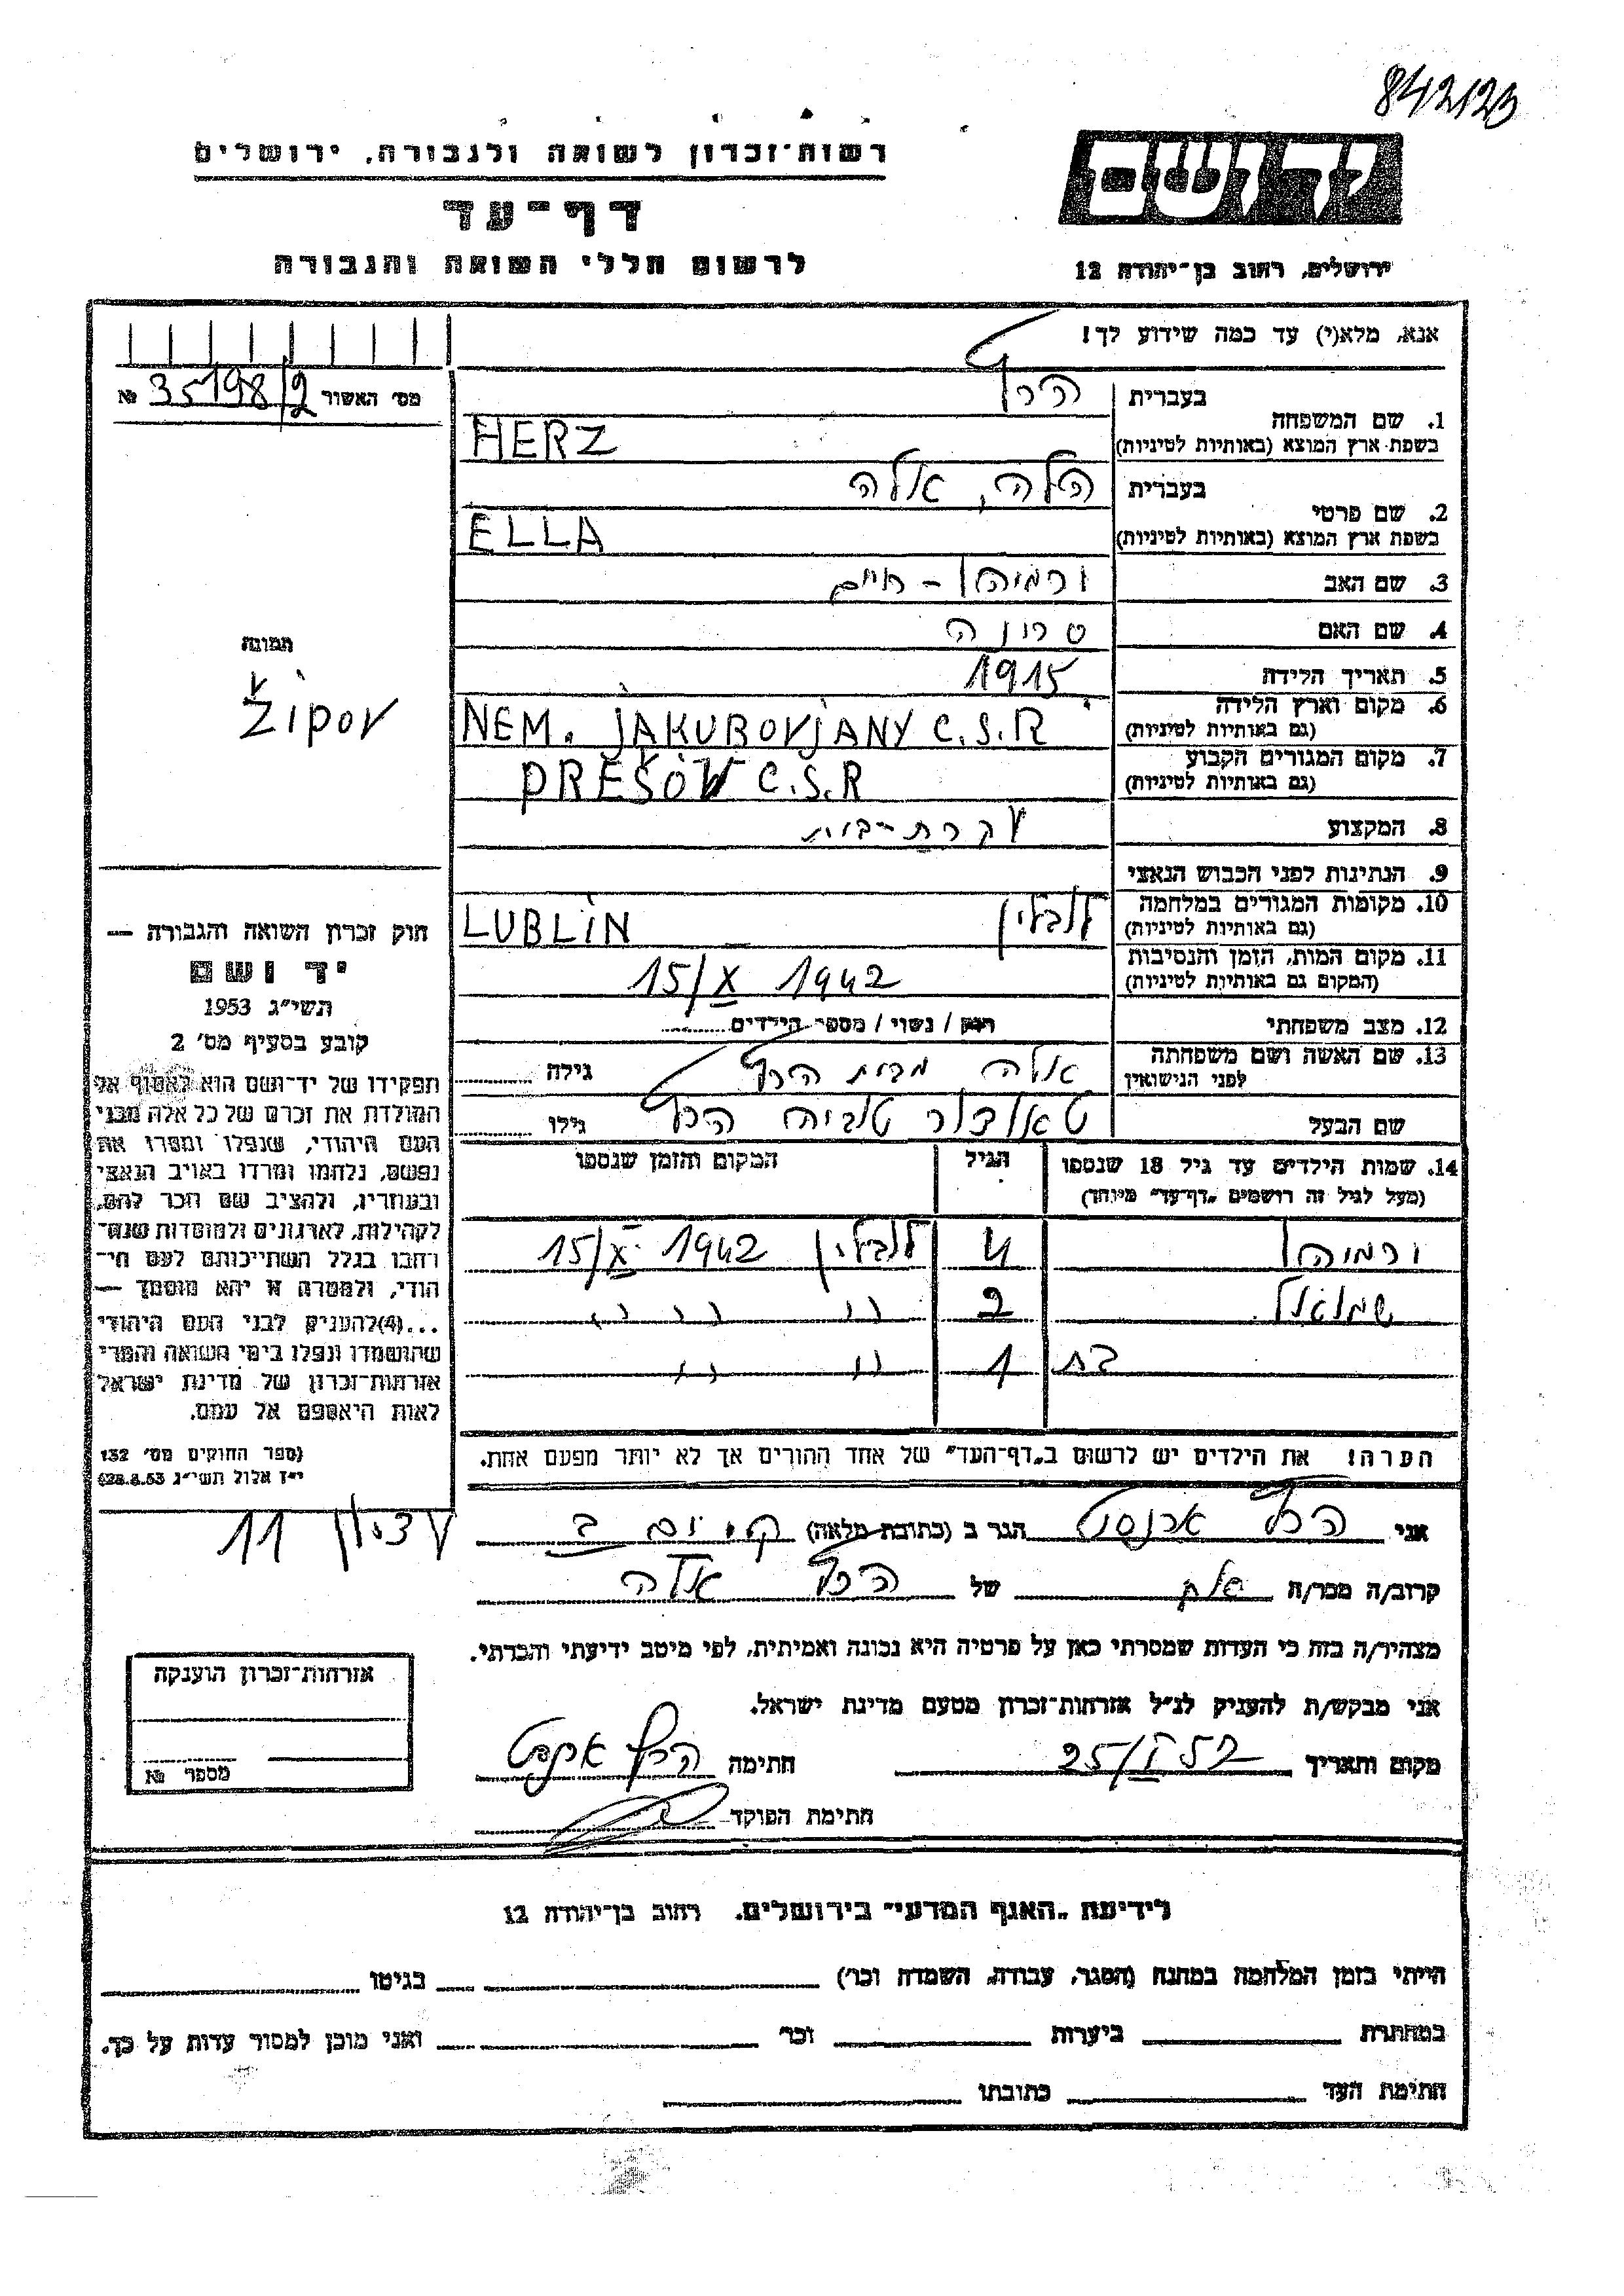 842123
רשות־זכרון לשואה ולגבורה, ירושלים
יד ושם
דף־עד
לרשום חללי השואה והגבורה
ירושלים, רחוב בן־יהודה 12
אנא, מלא(י) עד כמה שידוע לך!
מס׳ האשור № 35198/2
1. שם המשפחה בעברית הרץ
בשפת ארץ המוצא (באותיות לטיניות) HERZ
2. שם פרטי בעברית הלה, אלה
בשפת ארץ המוצא (באותיות לטיניות) ELLA
3. שם האב ירמיהו - חיים
4. שם האם
5. תאריך הלידה 1915
6. מקום וארץ הלידה (גם באותיות לטיניות) NEM. JAKUBOVJANY C.S.R
7. מקום המגורים הקבוע (גם באותיות לטיניות) PREŠOV C.S.R
8. המקצוע עקרת-בית
9. הנתינות לפני הכבוש הנאצי
10. מקומות המגורים במלחמה (גם באותיות לטיניות) לובלין LUBLIN
11. מקום המות, הזמן והנסיבות (המקום גם באותיות לטיניות) 15/X 1942
12. מצב משפחתי רווק / נשוי / מספר הילדים
13. שם האשה ושם משפחתה לפני הנישואין אלה מבית הרץ גילה
שם הבעל הרץ גילו
תמונה
Žipov
14. שמות הילדים עד גיל 18 שנספו
(מעל לגיל זה רושמים „דף־עד״ מיוחד)
הגיל
המקום והזמן שנספו
ירמיהו 4 לובלין 15/X. 1942
שמואל 2 " " "
בת 1 " " "
הערה! את הילדים יש לרשום ב„דף־העד״ של אחד ההורים אך לא יותר מפעם אחת.
חוק זכרון השואה והגבורה —
יד ושם
תשי״ג 1953
קובע בסעיף מס׳ 2
תפקידו של יד־ושם הוא לאסוף אל
המולדת את זכרם של כל אלה מבני
העם היהודי, שנפלו ומסרו את
נפשם, נלחמו ומרדו באויב הנאצי
ובעוזריו, ולהציב שם וזכר להם,
לקהילות, לארגונים ולמוסדות שנח־
רבו בגלל השתייכותם לעם הי־
הודי, ולמטרה זו יהא מוסמך —
...(4) להעניק לבני העם היהודי
שהושמדו ונפלו בימי השואה והמרי
אזרחות־זכרון של מדינת ישראל
לאות היאספם אל עמם.
(ספר החוקים מס׳ 132
י״ז אלול תשי״ג 28.8.53)
אני הרץ ארנסט הגר ב (כתובת מלאה) קרית ים ב
11
קרוב/ה מכר/ה אח של הרץ אלה
מצהיר/ה בזה כי העדות שמסרתי כאן על פרטיה היא נכונה ואמיתית, לפי מיטב ידיעתי והכרתי.
אני מבקש/ת להעניק לנ״ל אזרחות־זכרון מטעם מדינת ישראל.
מקום ותאריך חתימה הרץ ארנסט
חתימת הפוקד
אזרחות־זכרון הוענקה
מספר №
לידיעת „האגף המדעי״ בירושלים. רחוב בן־יהודה 12
הייתי בזמן המלחמה במחנה (הסגר, עבודה, השמדה וכו׳) בגיטו
במחתרת ביערות וכו׳ ואני מוכן למסור עדות על כך.
חתימת העד כתובתו